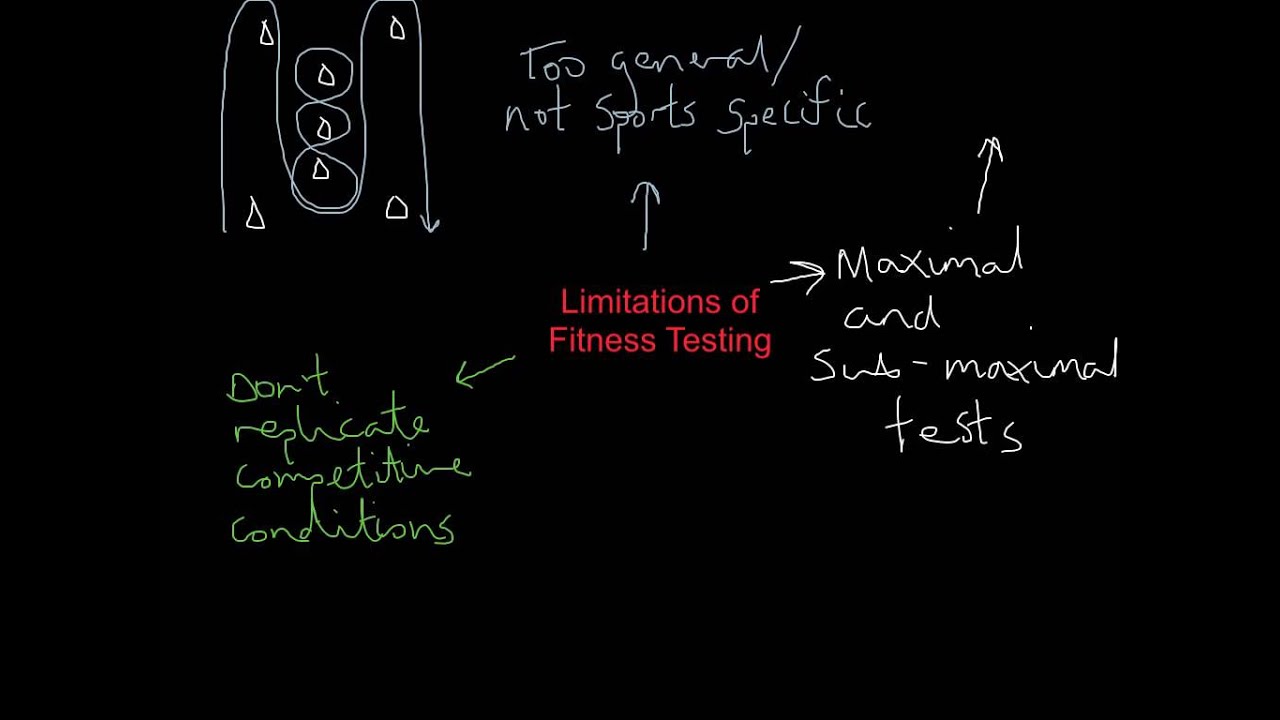 Too general/
not sports specific
Limitations of
Fitness Testing
Maximal
and
Sub-maximal
tests
Don't
replicate
competitive
conditions